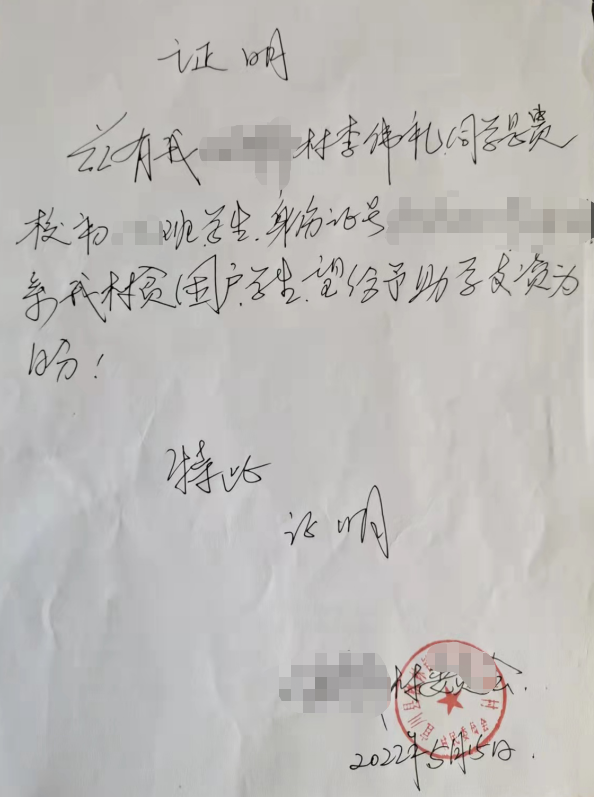 证明
兹有我 村李伟礼同学是贵
校初 班学生.身份证号
系我村贫困户学生.望给予助学支资为
盼!
特此
证明
村委会.
村民委员会
2022年5月15日.